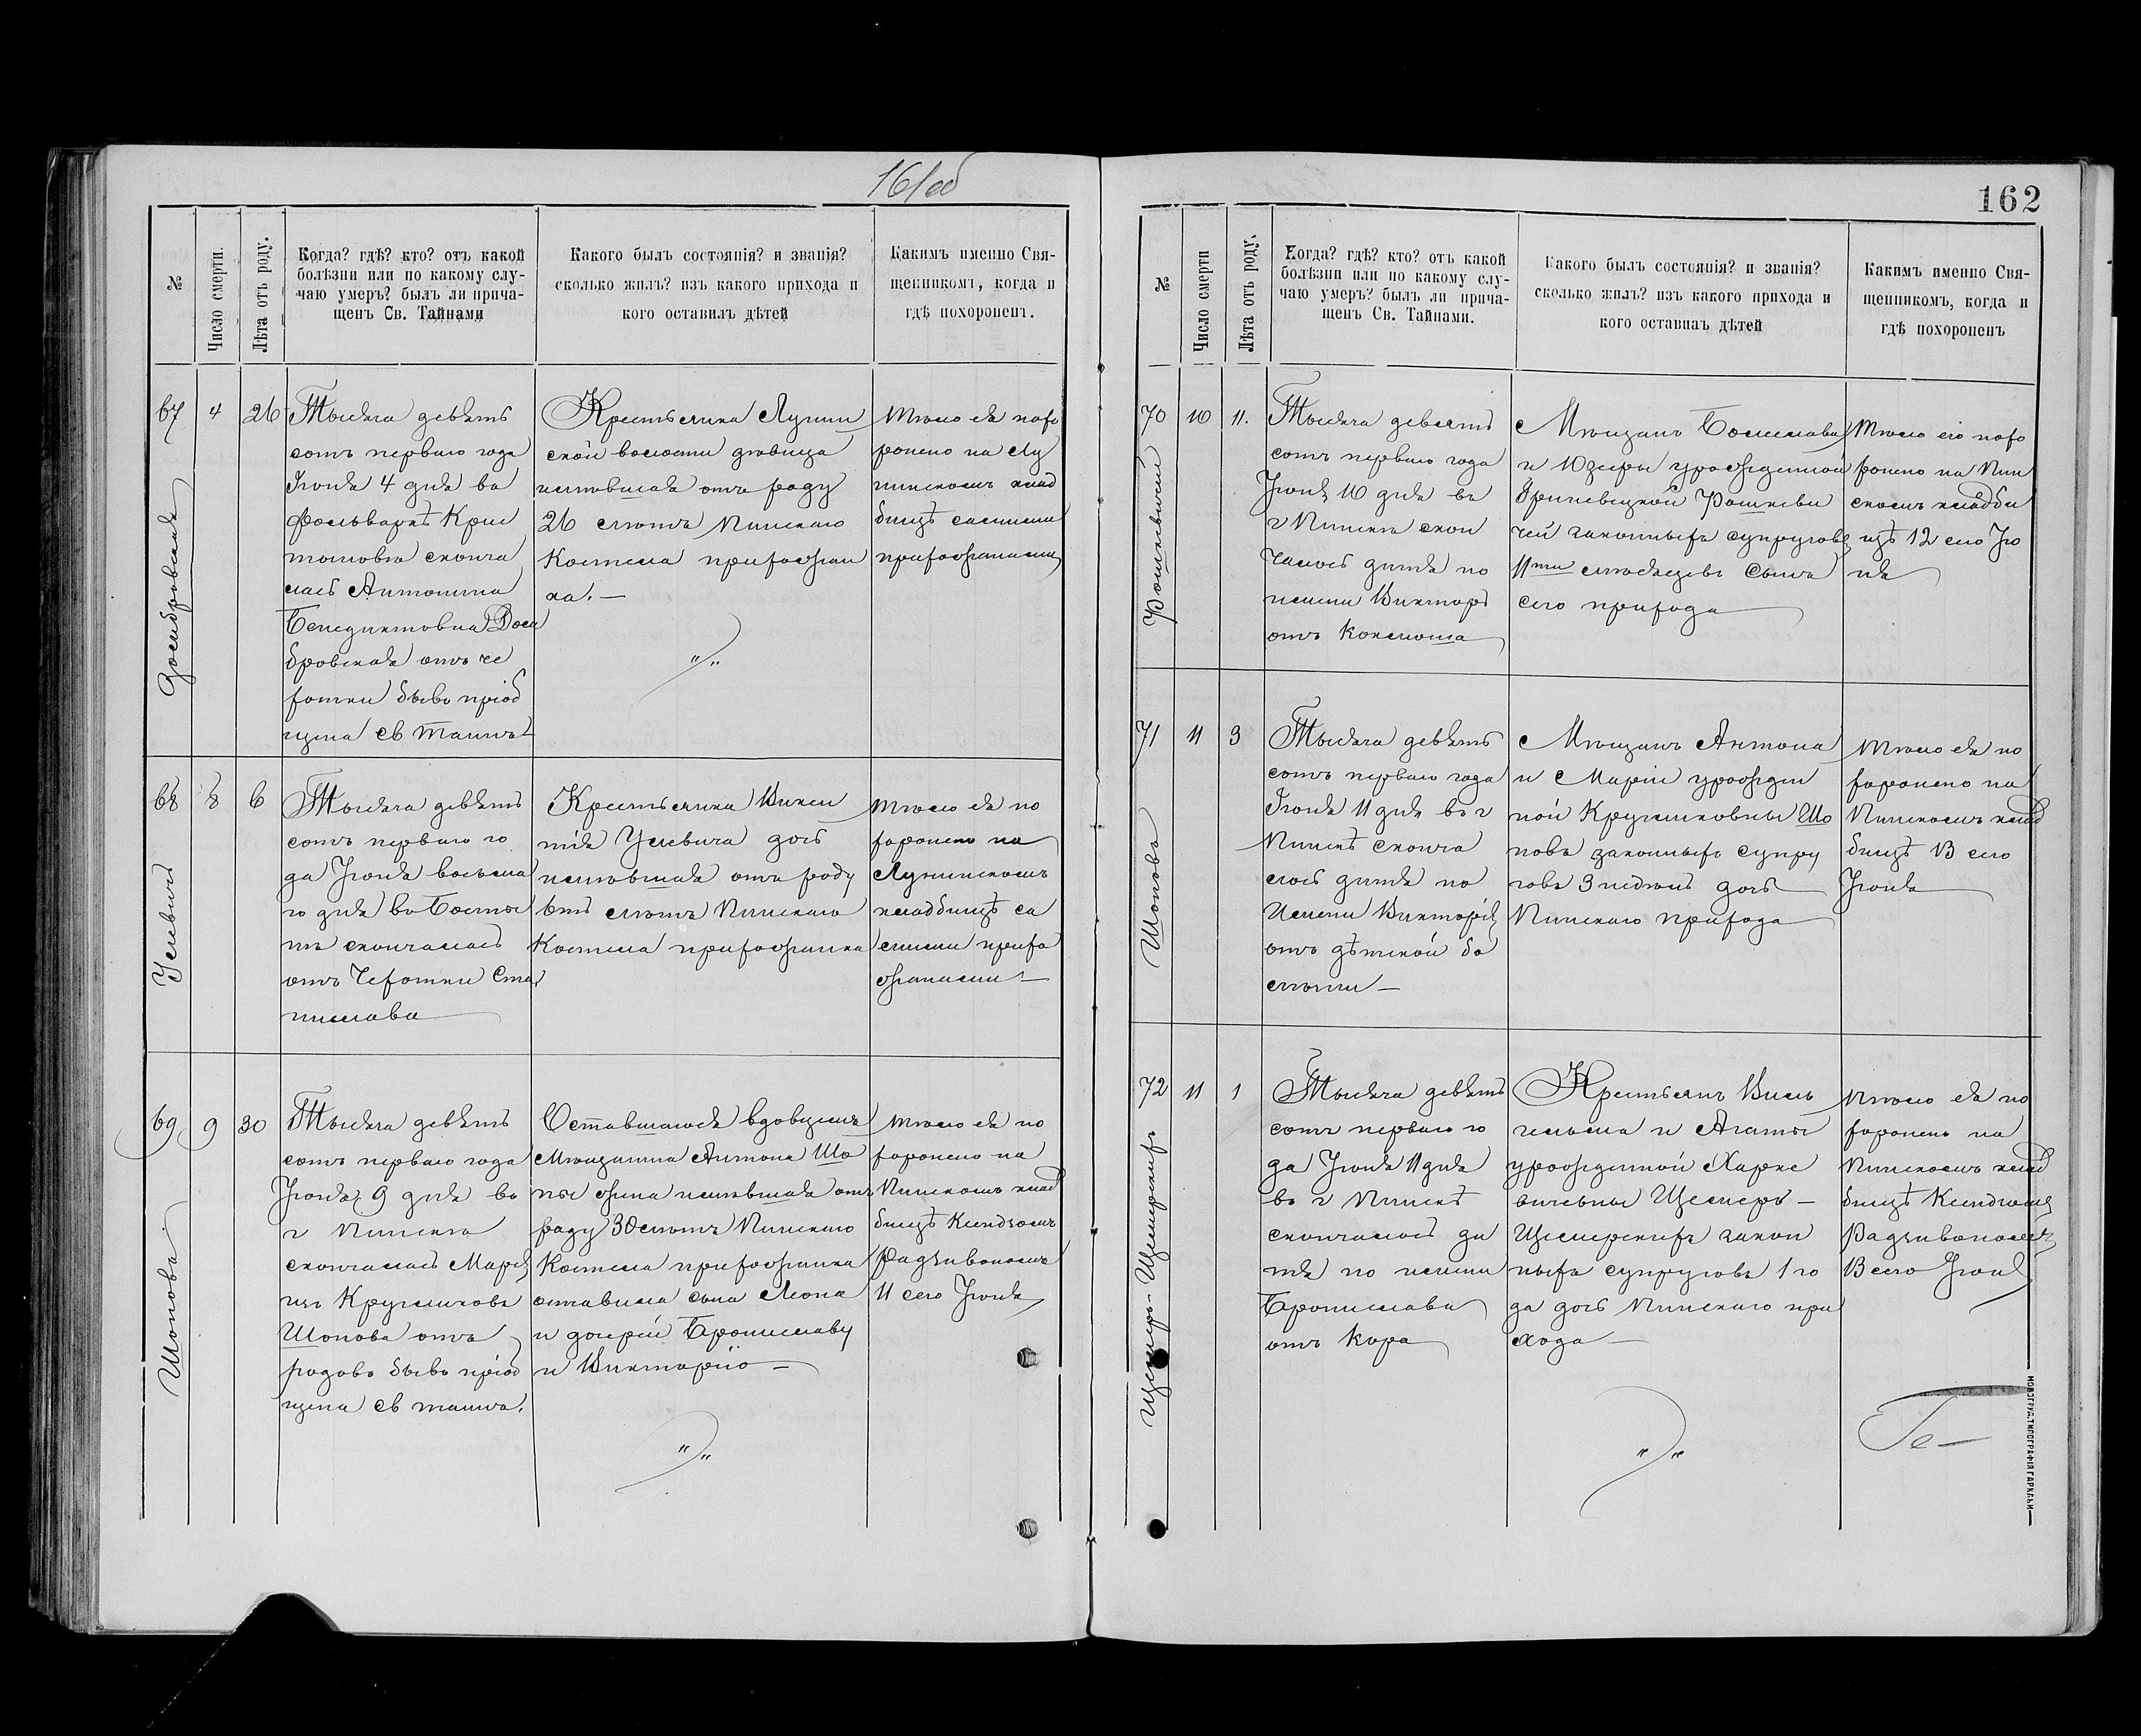 161об
№
Число смерти.
Лѣта отъ роду.
Когда? гдѣ? кто? отъ какой
болѣзни или по какому слу-
чаю умеръ? былъ ли прича-
щенъ Св. Тайнами
Какого былъ состоянія? и званія?
сколько жилъ? изъ какого прихода и
кого оставилъ дѣтей
Какимъ именно Свя-
щенникомъ, когда и
гдѣ похороненъ.
67
4
26
Тысяча девять
сотъ перваго года
Іюня 4 дня въ
фольваркѣ Крис
сконча
лась Антонина
Бенедиктовна
бровская отъ че
хотки бывъ пріоб
щена св таинъ
Крестьянка Лунин
ской волости дѣвица
имѣвшая отъ роду
26 лѣтъ Пинскаго
Костела прихожан
ка. —
Тѣло ея похо
ронено на Лу
нинскомъ клад
бищѣ самими
прихожанами
68
8
6
Усевичъ
Тысяча девять
сотъ перваго го
да Іюня восьма
го дня въ
скончалась
отъ Чехотки Ста
нислава
Крестьянина Викен
тія Усевича дочь
имѣвшая отъ роду
6ть лѣтъ Пинскаго
Костела прихожанка
Тѣло ея по
хоронено на
Лунинскомъ
кладбищѣ са
мими прихо
жанами —
69
9
30
Шопова
Тысяча девять
сотъ перваго года
Іюня 9 дня въ
г Пинскѣ
скончалась Марія
изъ Кругликовъ
Шопова отъ
родовъ бывъ пріоб
щена св таинъ.
Оставшагося вдовцемъ
Мѣщанина Антона Шо
пы жена имѣвшая отъ
роду 30 лѣтъ Пинскаго
Костела прихожанка
оставила сына Леона
и дочерей Брониславу
и Викторію —
Тѣло ея по
хоронено на
Пинскомъ клад
бищѣ Ксендзомъ
Радзивономъ
11 сего Іюня
162
№
Число смерти
Лѣта отъ роду.
Когда? гдѣ? кто? отъ какой
болѣзни или по какому слу-
чаю умеръ? былъ ли прича-
щенъ Св. Тайнами.
Какого былъ состоянія? и званія?
сколько жилъ? изъ какого прихода и
кого оставилъ дѣтей
Какимъ именно Свя-
щенникомъ, когда и
гдѣ похороненъ
70
10
11.
Тысяча девять
сотъ перваго года
Іюня 10 дня въ
г Пинскѣ скон
чалось дитя по
имени Викторъ
отъ Коклюша
Мѣщанъ Болеслава
и Юзефы урожденной
чей законныхъ супруговъ
11ти мѣсяцевъ сынъ
сего прихода
Тѣло его похо
ронено на Пин
скомъ кладби
щѣ 12 сего Iю
ня
71
11
3
Шоповъ
Тысяча девять
сотъ перваго года
Іюня 11 дня въ г
Пинскѣ сконча
лось дитя по
Имени Викторія
отъ дѣтской бо
лѣзни —
Мѣщанъ Антона
и Маріи урожден
ной Кругликовны Шо
повъ законныхъ супру
говъ 3 недѣль дочь
Пинскаго прихода
Тѣло ея по
хоронено на
Пинскомъ клад
бищѣ 13 сего
Іюня
72
11
1
Тысяча девять
сотъ перваго го
да Іюня 11 дня
въ г Пинскѣ
скончалось ди
тя по имени
Бронислава
отъ кора
Крестьянъ Виль
гельма и Агаты
урожденной Харке
вичевны —
закон
ныхъ супруговъ 1 го
да дочь Пинскаго при
хода —
Тѣло ея по
хоронено на
Пинскомъ клад
бищѣ Ксендзомъ
Радзивономъ
13 сего Іюня
НОВОГРУД. ТИПОГРАФІЯ ГАРКАВИ